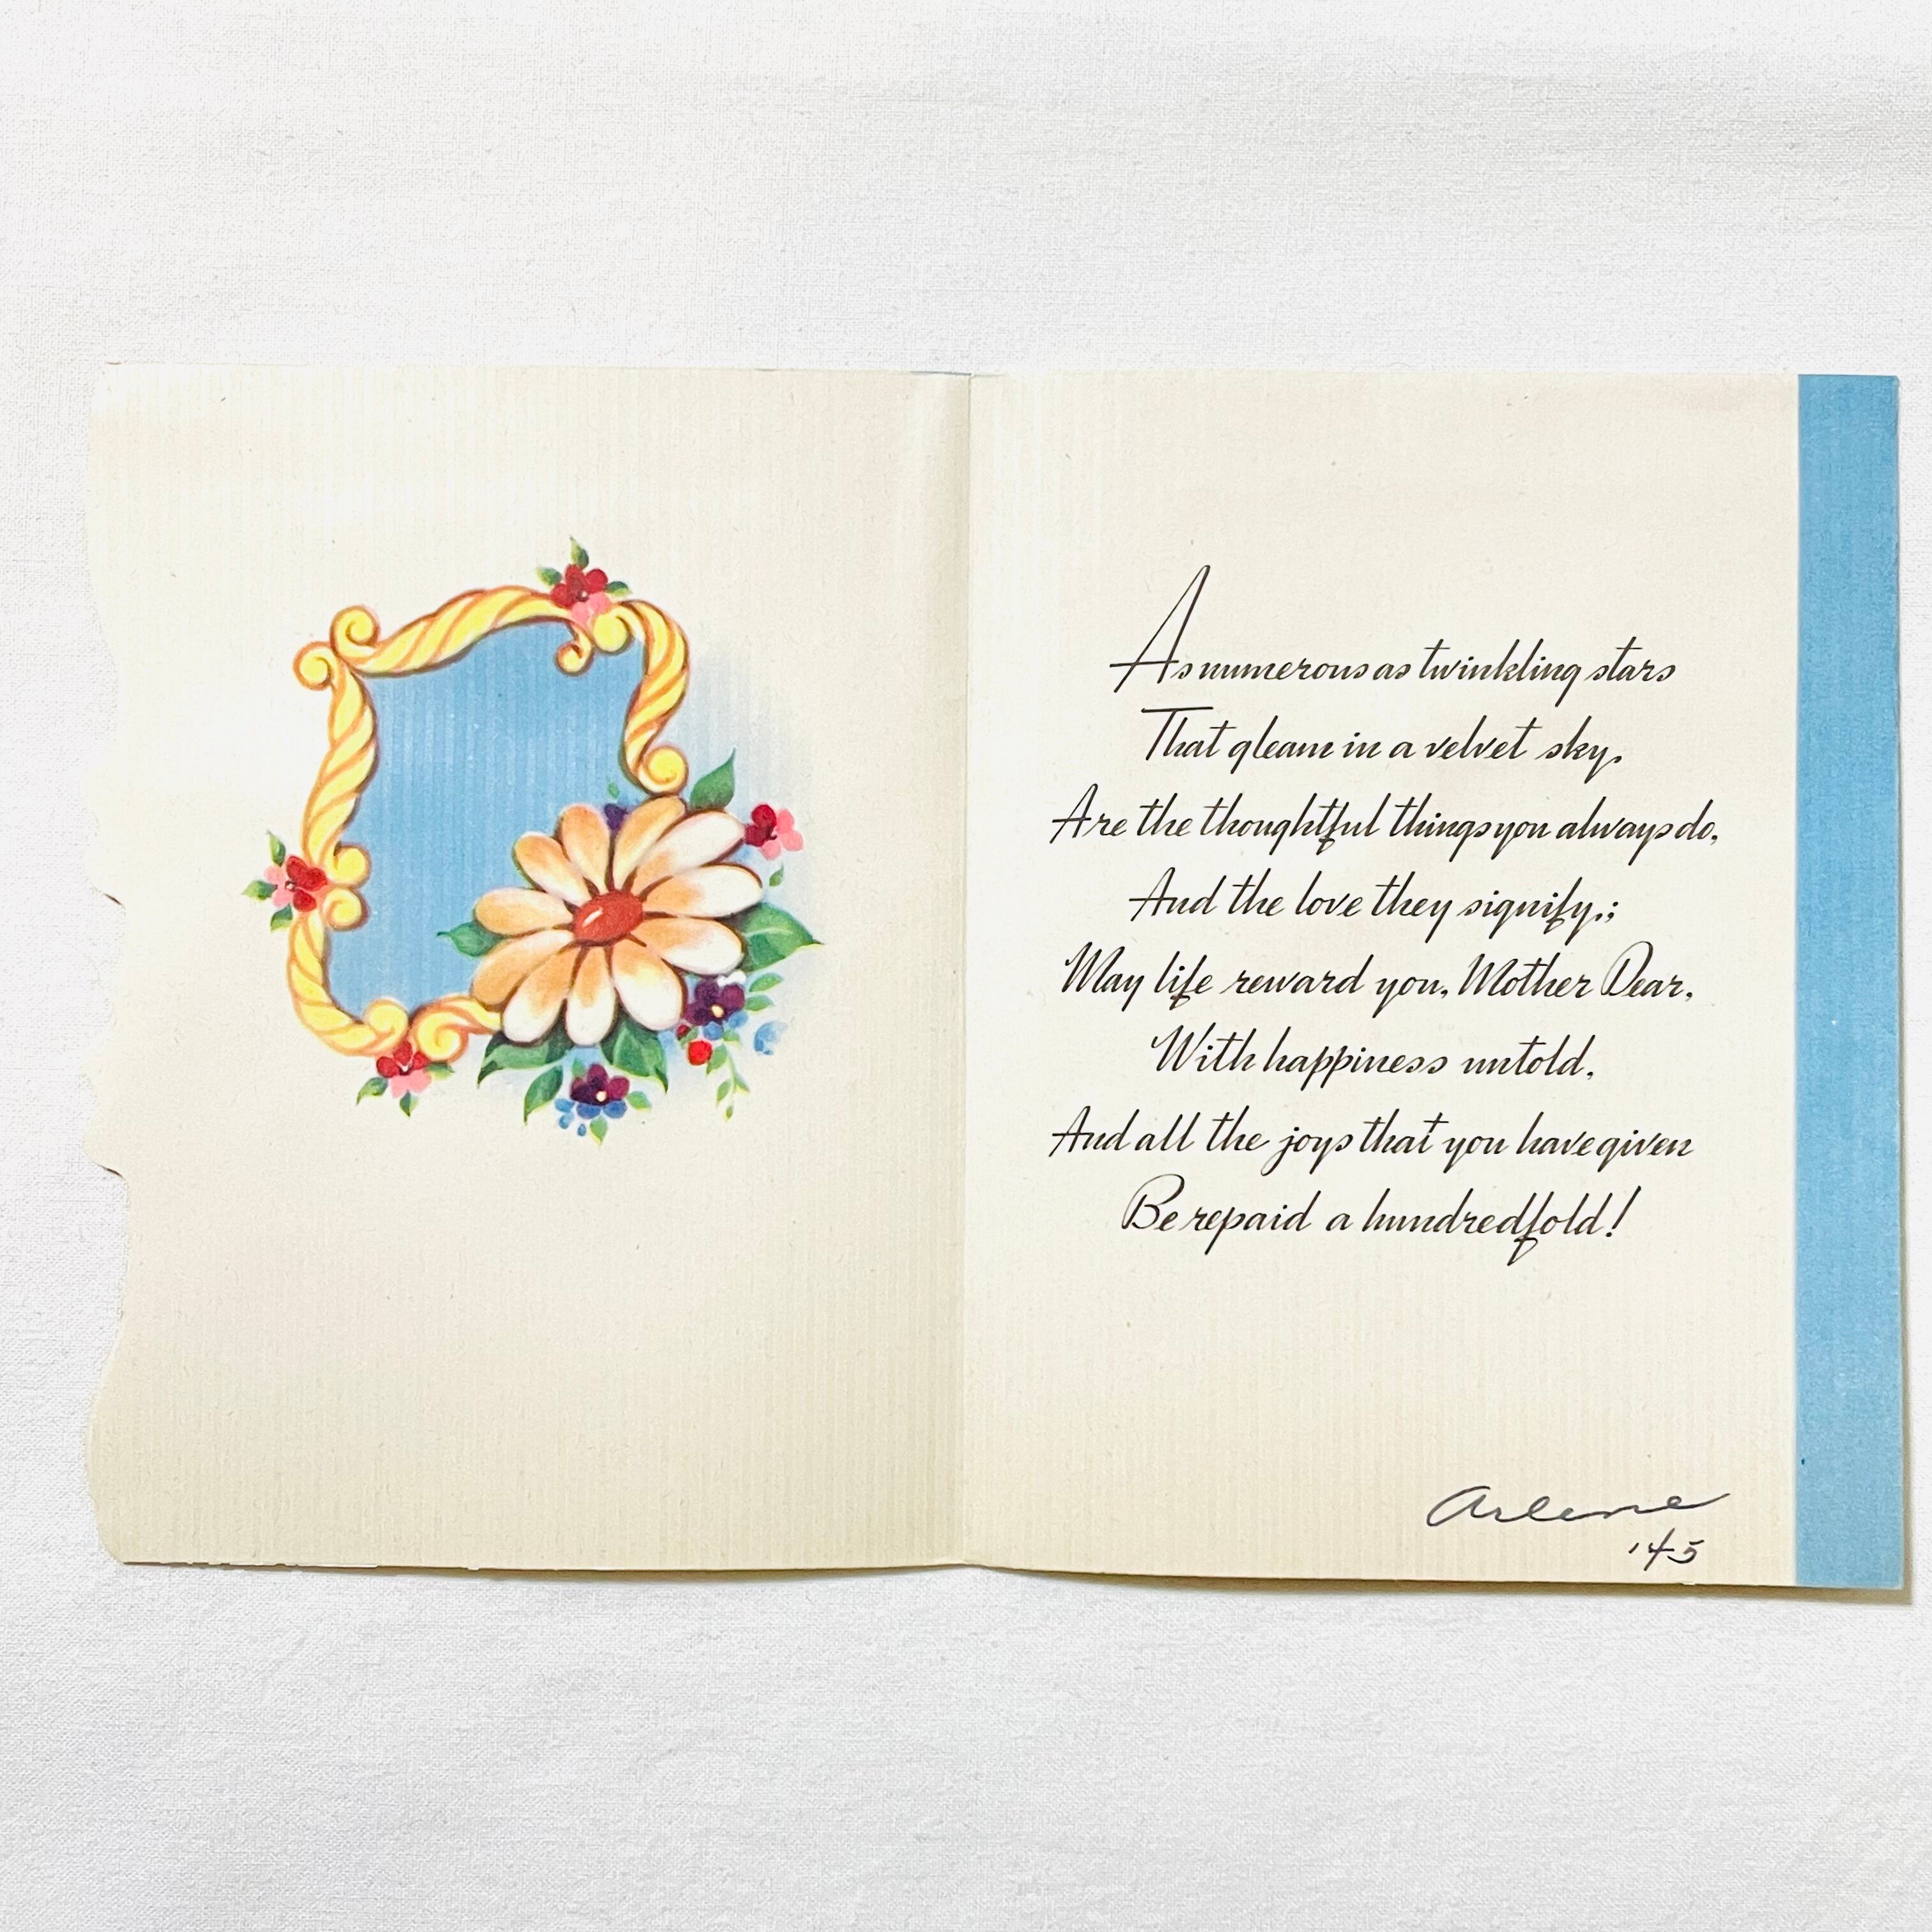 As numerous as twinkling stars
That gleam in a velvet sky,
Are the thoughtful things you always do,
And the love they signify.;
May life reward you, Mother Dear,
With happiness untold,
And all the joys that you have given
Be repaid a hundredfold!
Arlene
'45